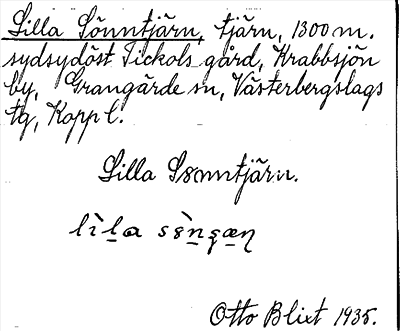 Lilla Sönntjärn, tjärn, 1300 m.
sydsydöst Tickols gård, Krabbsjön
by, Grangärde sn, Västerbergslags
tg, Kopp l.
Lilla Sönntjärn.
lìla
Otto Blixt 1935.